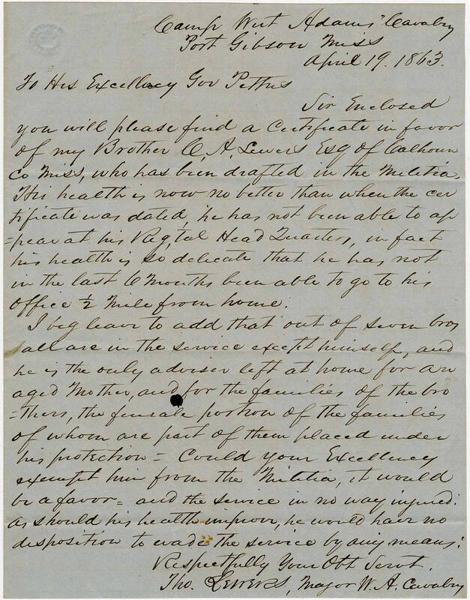 Camp Wirt Adams' Cavalry
Port Gibson Miss
April 19. 1863.
To His Excellency Gov Pettus
Sir Enclosed
you will please find a Certificate in favor
of my Brother O. A. Lewers Esq of Calhoun
Co Miss, who has been drafted in the Militia.
His health is now no better than when the cer
tificate was dated, he has not been able to ap
=pear at his Ragtal Head Quarters, in fact
his health is so delicate that he has not
in the last 6 months been able to go to his
Office ½ Mile from home.
I beg leave to add that out of seven bros
all are in the service except himself, and
he is the only adviser left at home for an
aged Mother, and for the families of the bro
=thers, the female portion of the families
of whom are part of them placed under
his protection = Could your Excellency
exempt him from the Militia, it would
be a favor = and the service in no way injured.
as should his health improve, he would have no
disposition to evade the service by any means.
Respectfully Your Obt Servt.
Tho. Lewers, Major W. A. Cavalry